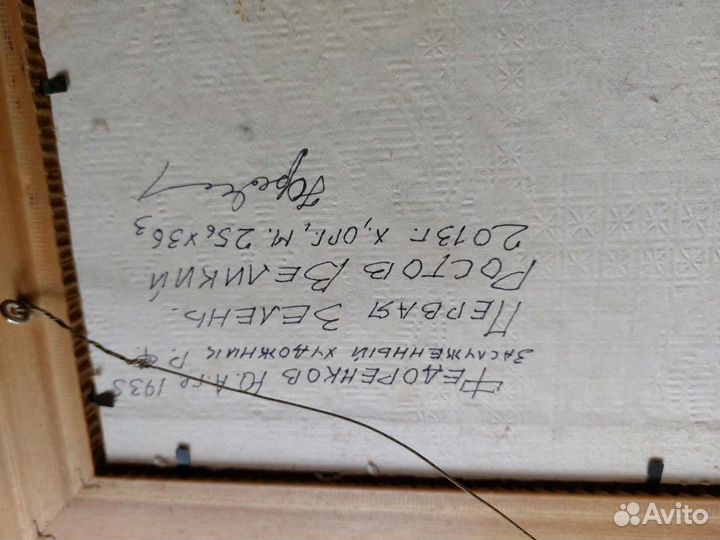 Федоренков Ю.А. гр 1935
заслуженный художник Р.Ф.
Первая зелень.
Ростов Великий
2013г. х, орг, м. 25,6 х 36,3
Avito